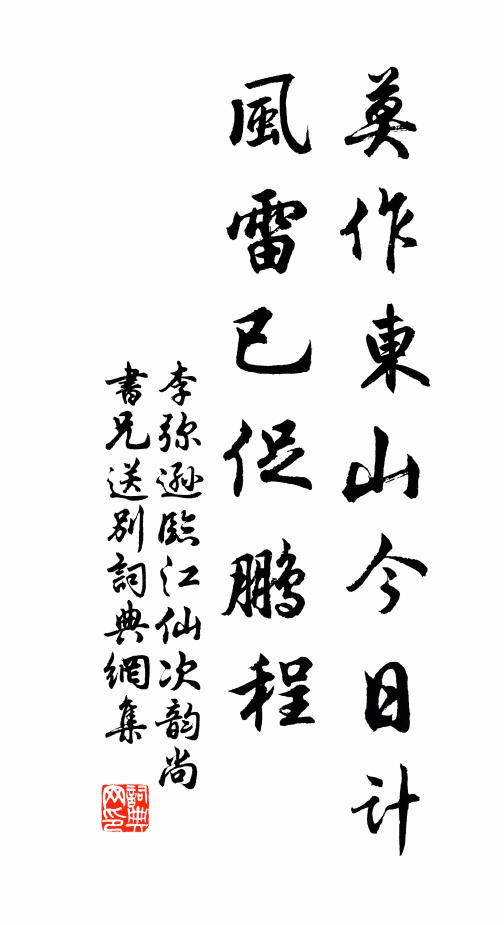 莫作東山今日计
風雷已促鵬程
李弥逊臨江仙次韵尚
書兄送别詞典網集
詞典
网印